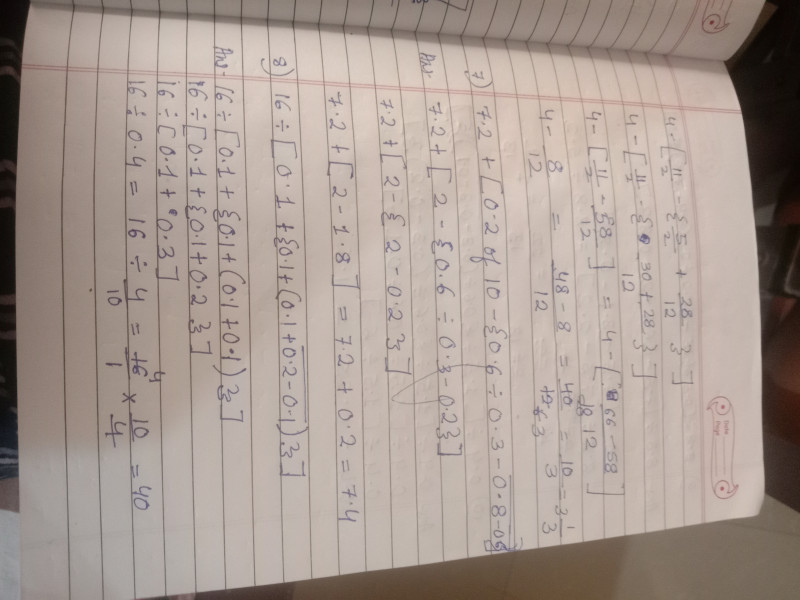 4 - [11/2 - {5/2 + 28/12}]
4 - [11/2 - {30 + 28/12}]
4 - [11/2 - 58/12] = 4 - [66 - 58/12]
4 - 8/12 = 48 - 8/12 = 40/12 = 10/3 = 3 1/3
7) 7.2 + [0.2 of 10 - {0.6 ÷ 0.3 - 0.8-0.6}]
Ans- 7.2 + [2 - {0.6 ÷ 0.3 - 0.2}]
7.2 + [2 - {2 - 0.2}]
7.2 + [2 - 1.8] = 7.2 + 0.2 = 7.4
8) 16 ÷ [0.1 + {0.1 + (0.1 + 0.2 - 0.1)}]
Ans- 16 ÷ [0.1 + {0.1 + (0.1 + 0.1)}]
16 ÷ [0.1 + {0.1 + 0.2}]
16 ÷ [0.1 + 0.3]
16 ÷ 0.4 = 16 ÷ 4/10 = 16/1 × 10/4 = 40